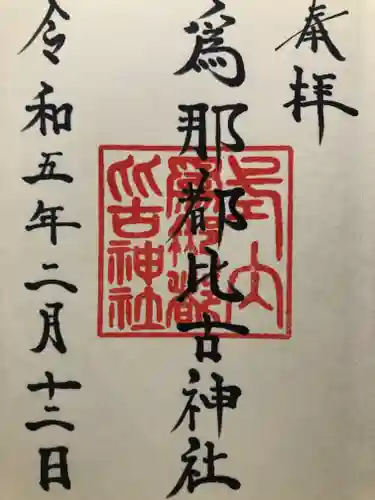 奉拝
爲那都比古神社
令和五年二月十二日
爲那都
比古神社